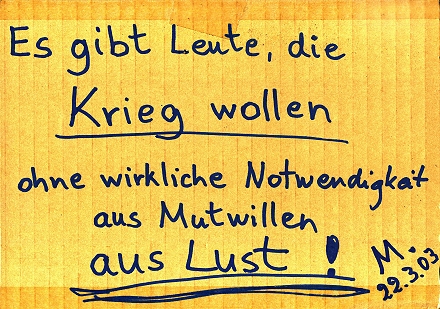 Es gibt Leute, die
Krieg wollen
ohne wirkliche Notwendigkeit
aus Mutwillen
aus Lust!
M.
22.3.03